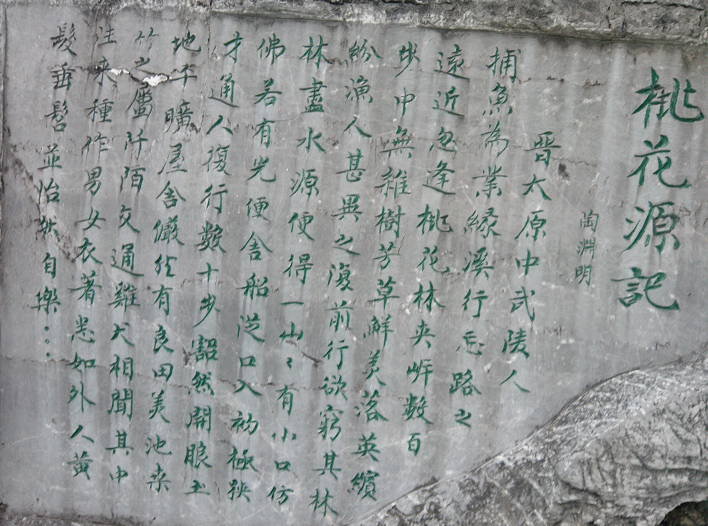 桃花源記
陶淵明
晉太原中武陵人
捕魚為業緣溪行忘路之
遠近忽逢桃花林夾岸数百
步中無雜樹芳草鮮美落英繽
紛漁人甚異之復前行欲窮其林
林盡水源便得一山〻有小口仿
佛若有光便舍船從口入初極狹
才通人復行数十步豁然開眼土
地平曠屋舍儼然有良田美池桑
竹之屬阡陌交通雞犬相聞其中
往來種作男女衣著悉如外人黃
髮垂髫並怡然自樂…